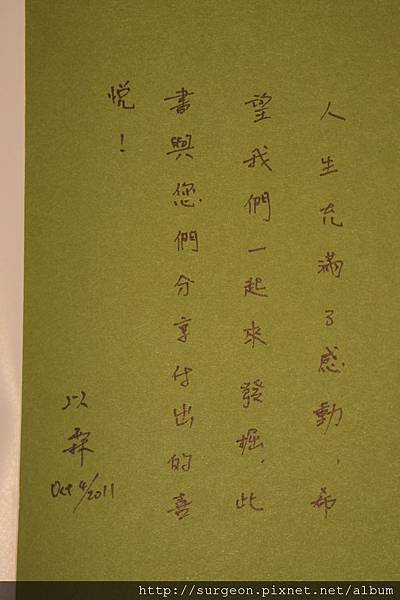 人生充滿了感動,希
望我們一起來發掘,此
書與您們分享付出的喜
悅!
以霖
Oct 4/2011
http://surgeon.pixnet.net/album